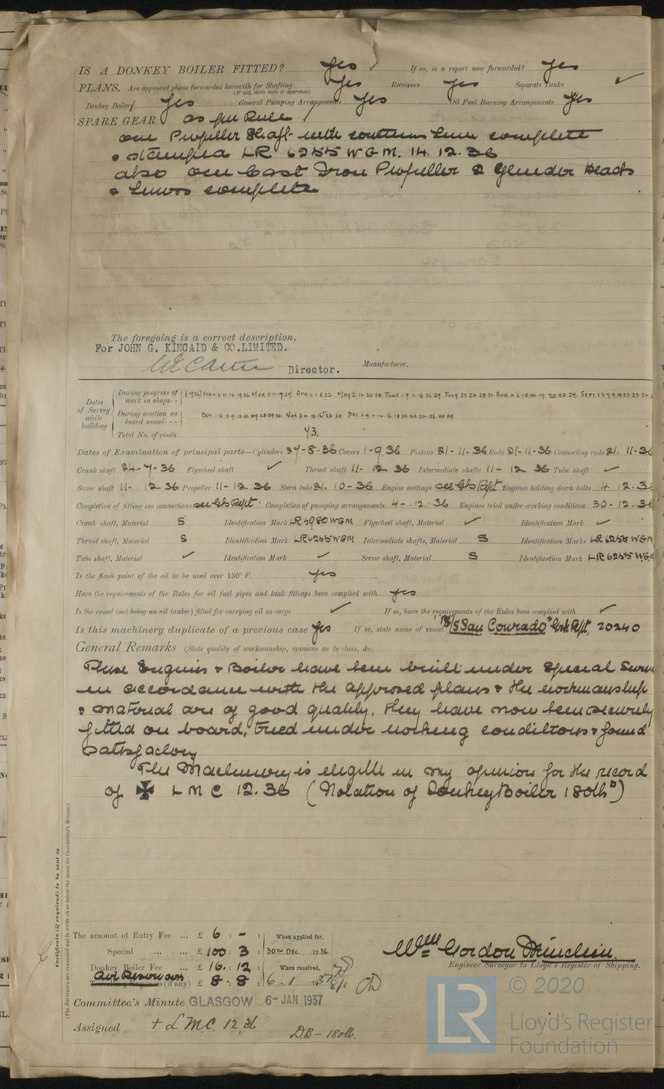 IS A DONKEY BOILER FITTED? Yes If so, is a report now forwarded? Yes
PLANS. Are approved plans forwarded herewith for Shafting Yes Receivers Yes Separate Tanks ✓
(If not, state date of approval)
Donkey Boilers Yes General Pumping Arrangements Yes Oil Fuel Burning Arrangements Yes
SPARE GEAR as per Rule
one Propeller Shaft with continuous liner complete
& stamped LR 6255 WGM. 14.12.36
also one Cast Iron Propeller 2 Cylinder Heads
& Liners complete
The foregoing is a correct description,
For JOHN G. KINCAID & CO. LIMITED.
Director. Manufacturer.
Dates of Survey while building
During progress of work in shops - -
During erection on board vessel - - -
Total No. of visits 43.
Dates of Examination of principal parts—Cylinders 27-8-36 Covers 1-9 36 Pistons 21-11.36 Rods 21-11-36 Connecting rods 21.11.36
Crank shaft 24-7-36 Flywheel shaft ✓ Thrust shaft 11-12 36 Intermediate shafts 11-12 36 Tube shaft ✓
Screw shaft 11-12 36 Propeller 11-12 36 Stern tube 21.10-36 Engine seatings see Gls Rept. Engines holding down bolts 4 12.36
Completion of fitting sea connections see Gls Rept. Completion of pumping arrangements 4-12.36 Engines tried under working conditions 30-12.36
Crank shaft, Material S Identification Mark LR5980WGM Flywheel shaft, Material ✓ Identification Mark ✓
Thrust shaft, Material S Identification Mark LR6255WGM Intermediate shafts, Material S Identification Marks LR6255 WGM
Tube shaft, Material ✓ Identification Mark ✓ Screw shaft, Material S Identification Mark LR6255 WGM
Is the flash point of the oil to be used over 150° F. Yes
Have the requirements of the Rules for oil fuel pipes and tank fittings been complied with Yes
Is the vessel (not being an oil tanker) fitted for carrying oil as cargo ✓ If so, have the requirements of the Rules been complied with ✓
Is this machinery duplicate of a previous case Yes If so, state name of vessel M/S San Conrado Gnk Rept. 20240
General Remarks (State quality of workmanship, opinions as to class, &c.
These Engines & Boiler have been built under Special Survey
in accordance with the approved plans & the workmanship
& material are of good quality. They have now been securely
fitted on board, tried under working conditions & found
satisfactory
The Machinery is eligible in my opinion for the record
of ✠ LMC 12.36 (Notation of Donkey Boiler 180lbs)
Certificate (if required) to be sent to
The amount of Entry Fee ... £ 6 : - : When applied for,
Special ... ... £ 100 : 3 : 30th Dec. 1936
Donkey Boiler Fee ... £ 16 : 12 : When received,
Air Reservoirs (if any) £ 8 : 8 : 6.1
Wm Gordon Minchin
Engineer Surveyor to Lloyd's Register of Shipping.
Committee's Minute GLASGOW 6-JAN 1937
Assigned + LMC 12.36
DB-180lb.
© 2020
LR
Lloyd's Register
Foundation